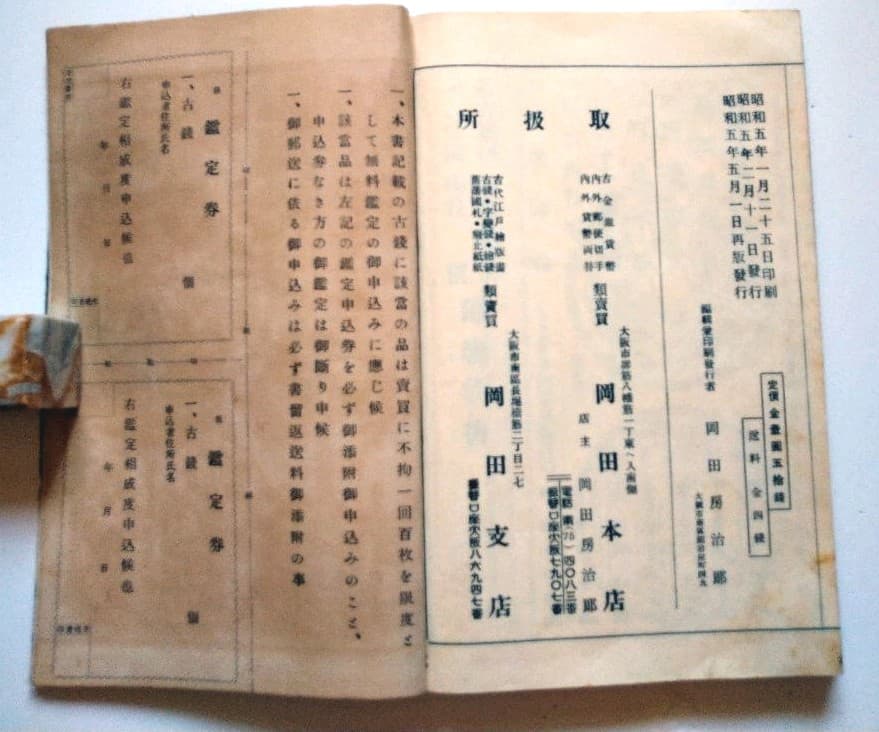 昭和五年一月二十五日印刷
昭和五年二月十一日發行
昭和五年五月一日再版發行
定價金壹圓五拾錢
送料金四錢
編輯兼印刷發行者 岡田房治郎
取扱所
古金銀貨幣
内外郵便切手
内外貨幣両替
類賣買
岡田本店
店主 岡田房治郎
電話南(75)四〇八三番
振替口座大阪七九〇七番
古代江戸繪版畫
古錢・字變錢・繪錢
舊藩國札・廢止紙幣
類賣買
大阪市南區長堀橋筋二丁目二七
岡田支店
振替口座大阪八六九四七番
一、本書記載の古錢に該當の品は賣買に不拘一回百枚を限度と
して無料鑑定の御申込みに應じ候
一、該當品は左記の鑑定申込券を必ず御添附御申込みのこと、
申込券なき方の御鑑定は御斷り申候
一、御郵送に依る御申込みは必ず書留返送料御添附の事
鑑定券
一、古錢 個
申込者住所氏名
右鑑定相成度申込候也
年 月 日
鑑定券
一、古錢 個
申込者住所氏名
右鑑定相成度申込候也
年 月 日